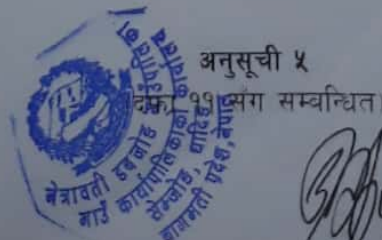 अनुसूची ५
दफा ११ सँग सम्बन्धित
नेत्रावती डबजोङ गाउँपालिका
गाउँ कार्यपालिकाको कार्यालय
सेमजोङ, धादिङ
बागमती प्रदेश, नेपाल